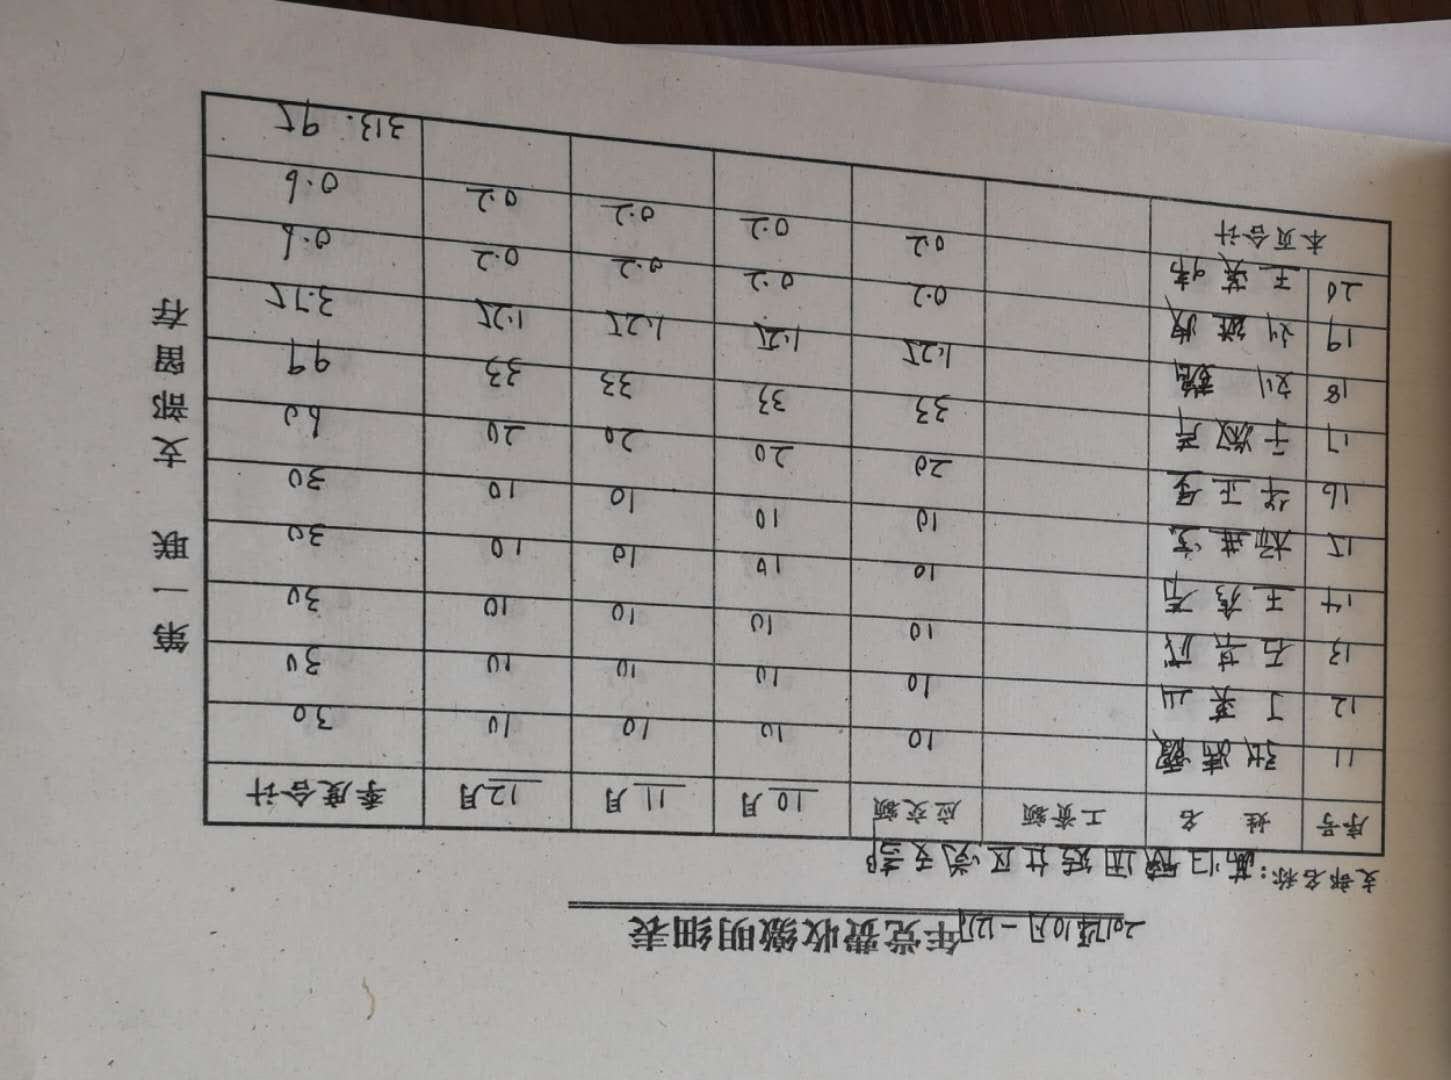 2017年10月-12月年党费收缴明细表
支部名称: 社区党支部
序号 姓名 工资额 应交额 10月 11月 12月 季度合计
11 张清霞 10 10 10 10 30
12 丁英山 10 10 10 10 30
13 石其 10 10 10 10 30
14 王 10 10 10 10 30
15 杨 10 10 10 10 30
16 毕正 20 20 20 20 60
17 于淑芹 33 33 33 33 99
18 刘 1.25 1.25 1.25 1.25 3.75
19 刘 0.2 0.2 0.2 0.2 0.6
20 王英 0.2 0.2 0.2 0.2 0.6
本页合计 313.95
第一联 支部留存